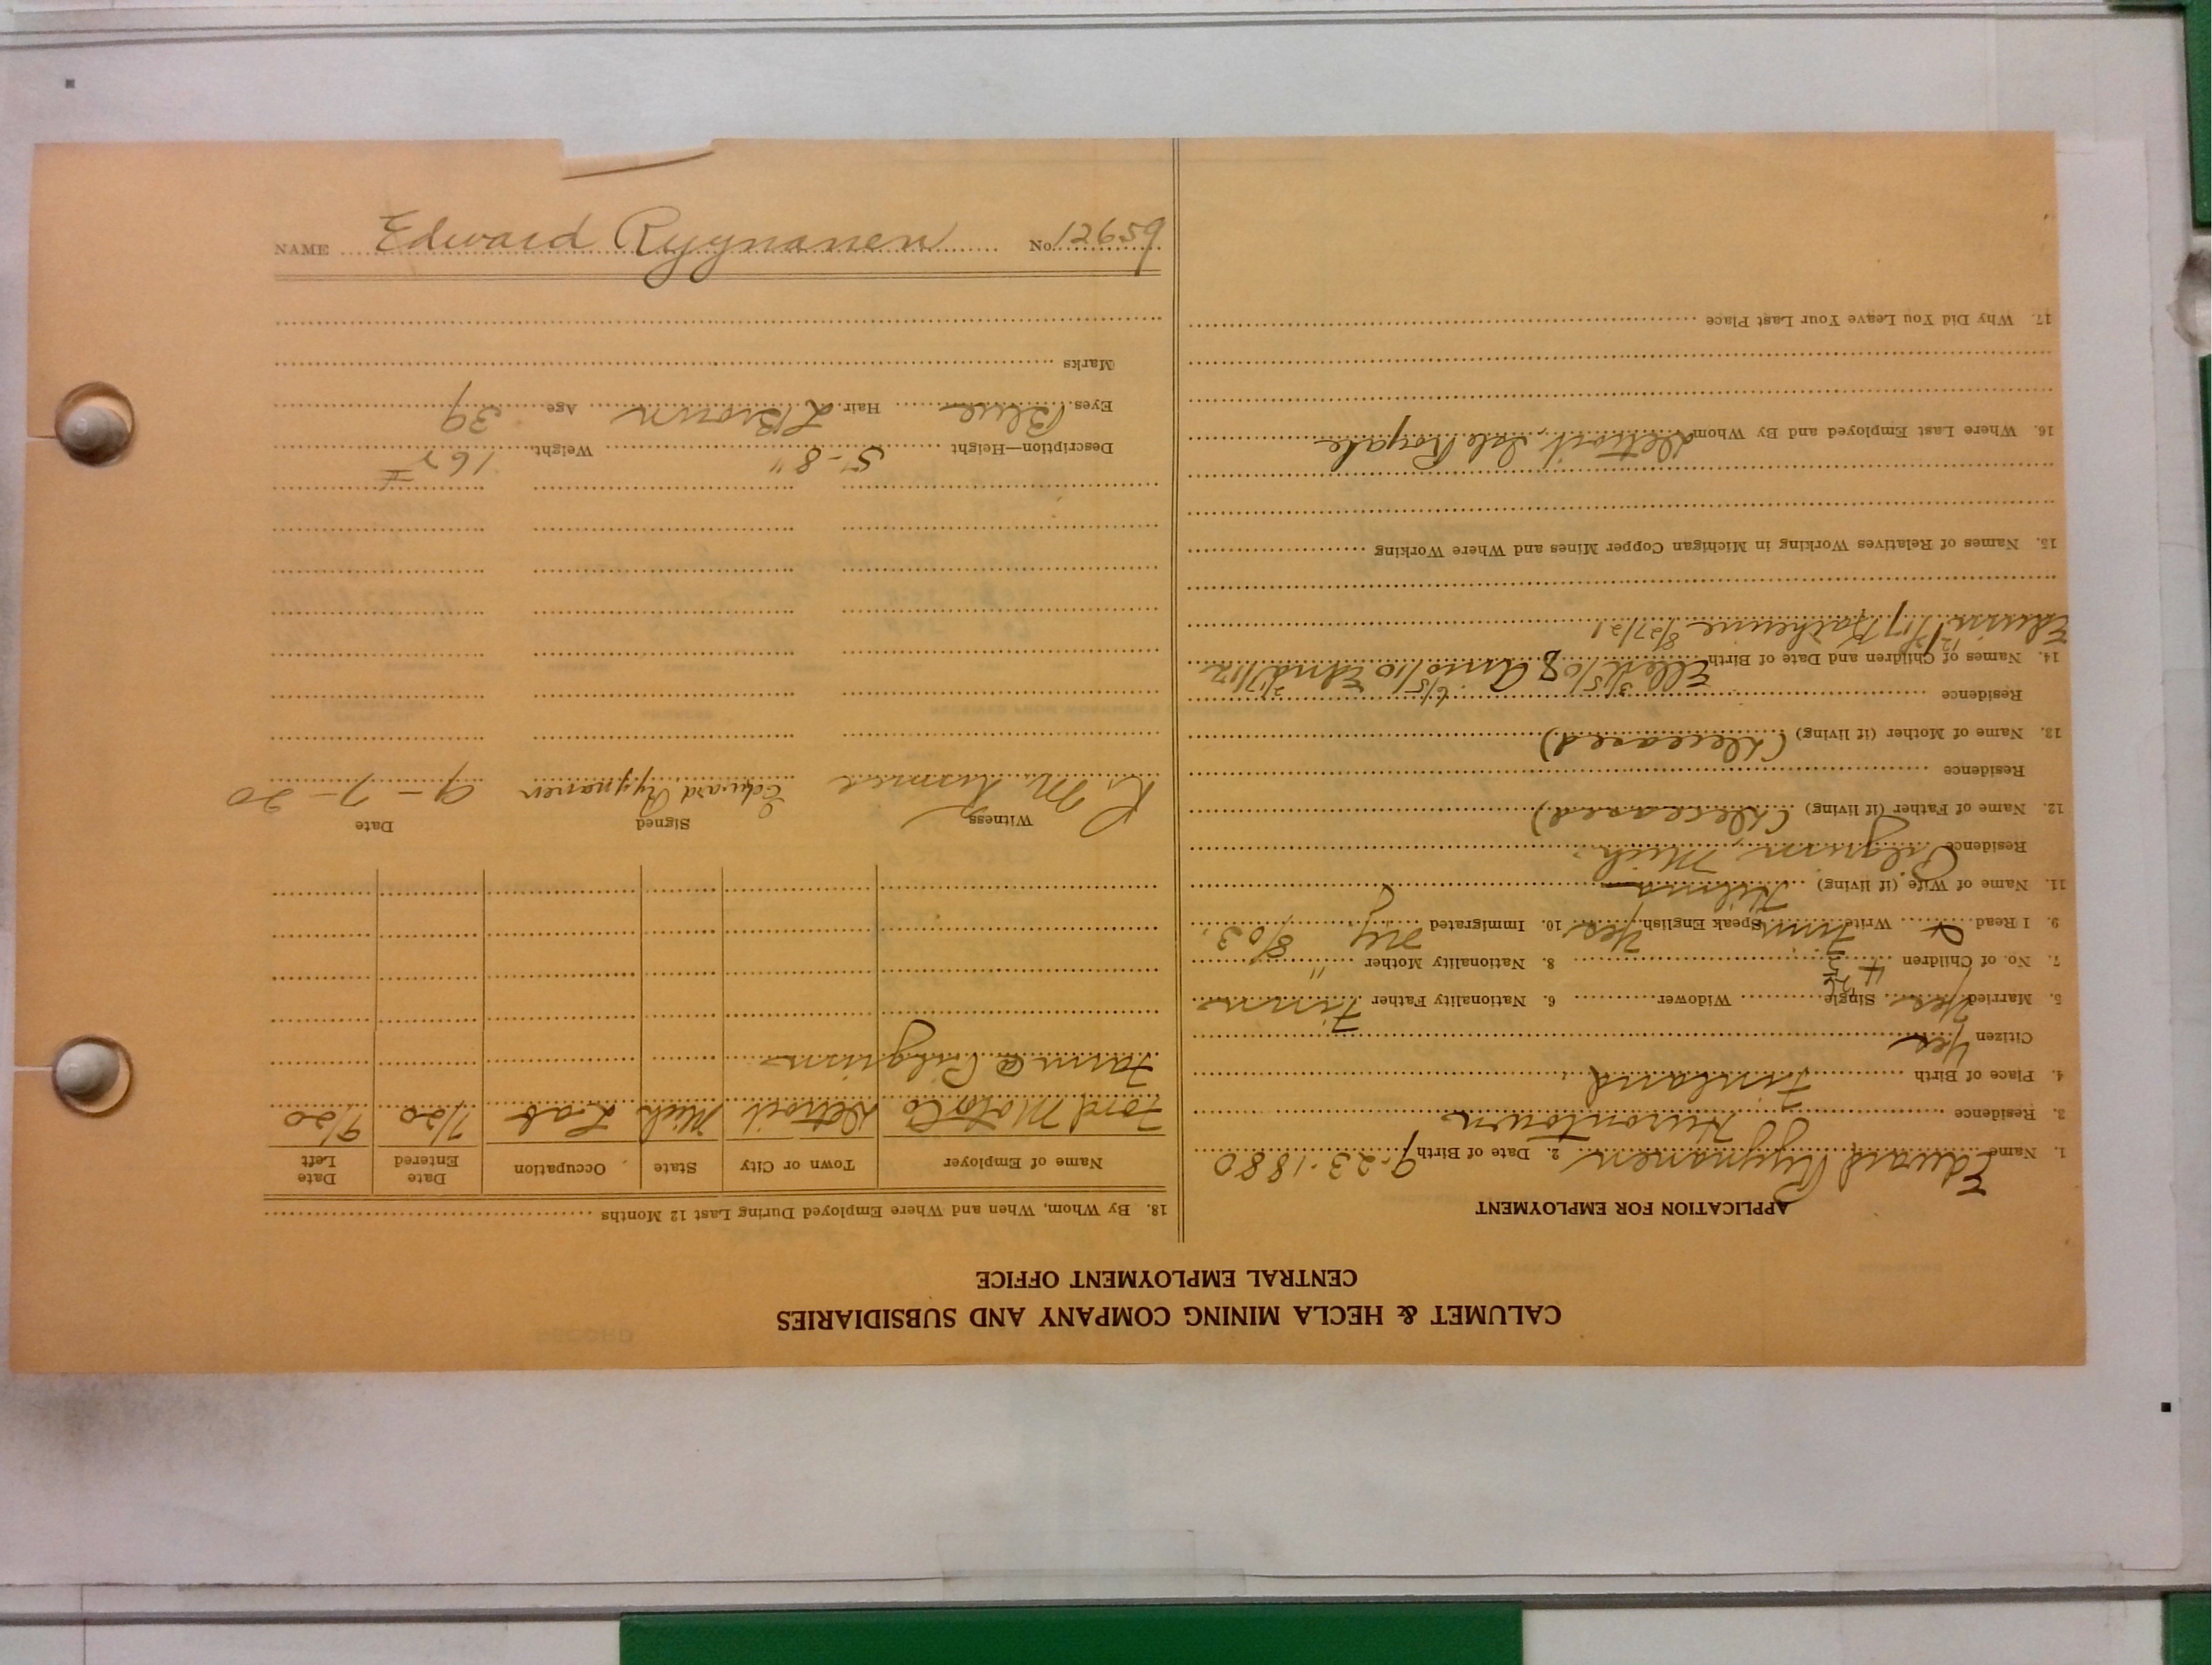 CALUMET & HECLA MINING COMPANY AND SUBSIDIARIES
CENTRAL EMPLOYMENT OFFICE
APPLICATION FOR EMPLOYMENT
1. Name Edward Ryynanen 2. Date of Birth 9-23-1880
3. Residence Hurontown
4. Place of Birth Finland
Citizen Yes
5. Married Yes Single Widower 6. Nationality Father Finn
7. No. of Children 4 8. Nationality Mother "
9. I Read & Write Finn Speak English Yes 10. Immigrated NY 8/03.
11. Name of Wife (if living) Hilma
Residence Pilgrim, Mich.
12. Name of Father (if living) (Deceased)
Residence
13. Name of Mother (if living) (Deceased)
Residence
14. Names of Children and Date of Birth Ellen 3/5/08 Arno 6/5/10 Edna 2/17/12
Edwin 12/ /17 Katherine 8/27/21
15. Names of Relatives Working in Michigan Copper Mines and Where Working
16. Where Last Employed and By Whom Detroit, Isle Royale
17. Why Did You Leave Your Last Place
18. By Whom, When and Where Employed During Last 12 Months
Name of Employer Town or City State Occupation Date Entered Date Left
Ford Motor Co Detroit Mich Lab 7/20 9/20
Farm @ Pilgrim
Witness Signed Date
Edward Ryynanen 9-7-20
Description—Height 5'-8" Weight
Eyes Blue Hair L Brown Age 39
Marks
NAME Edward Ryynanen No. 12659